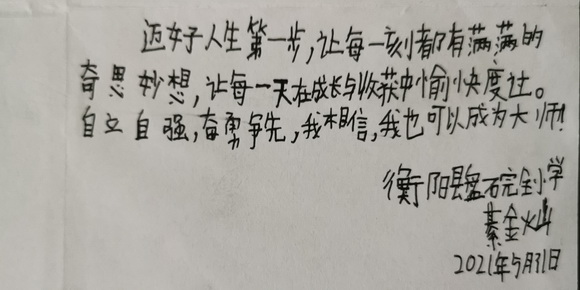 迈好人生第一步,让每一刻都有满满的
奇思妙想,让每一天在成长与收获中愉快度过。
自立自强,奋勇争先,我相信,我也可以成为大师!
衡阳县盘石完全小学
綦金灿
2021年5月31日